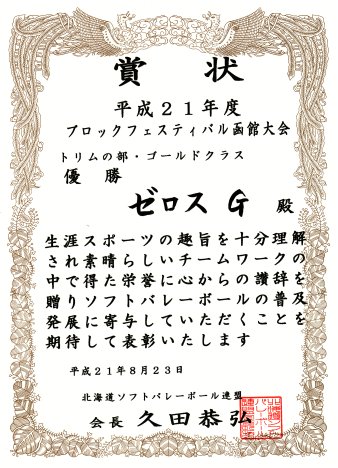 賞状
平成21年度
ブロックフェスティバル函館大会
トリムの部・ゴールドクラス
優勝
ゼロスG 殿
生涯スポーツの趣旨を十分理解
され素晴らしいチームワークの
中で得た栄誉に心からの讃辞を
贈りソフトバレーボールの普及
発展に寄与していただくことを
期待して表彰いたします
平成21年8月23日
北海道ソフトバレーボール連盟
会長 久田恭弘